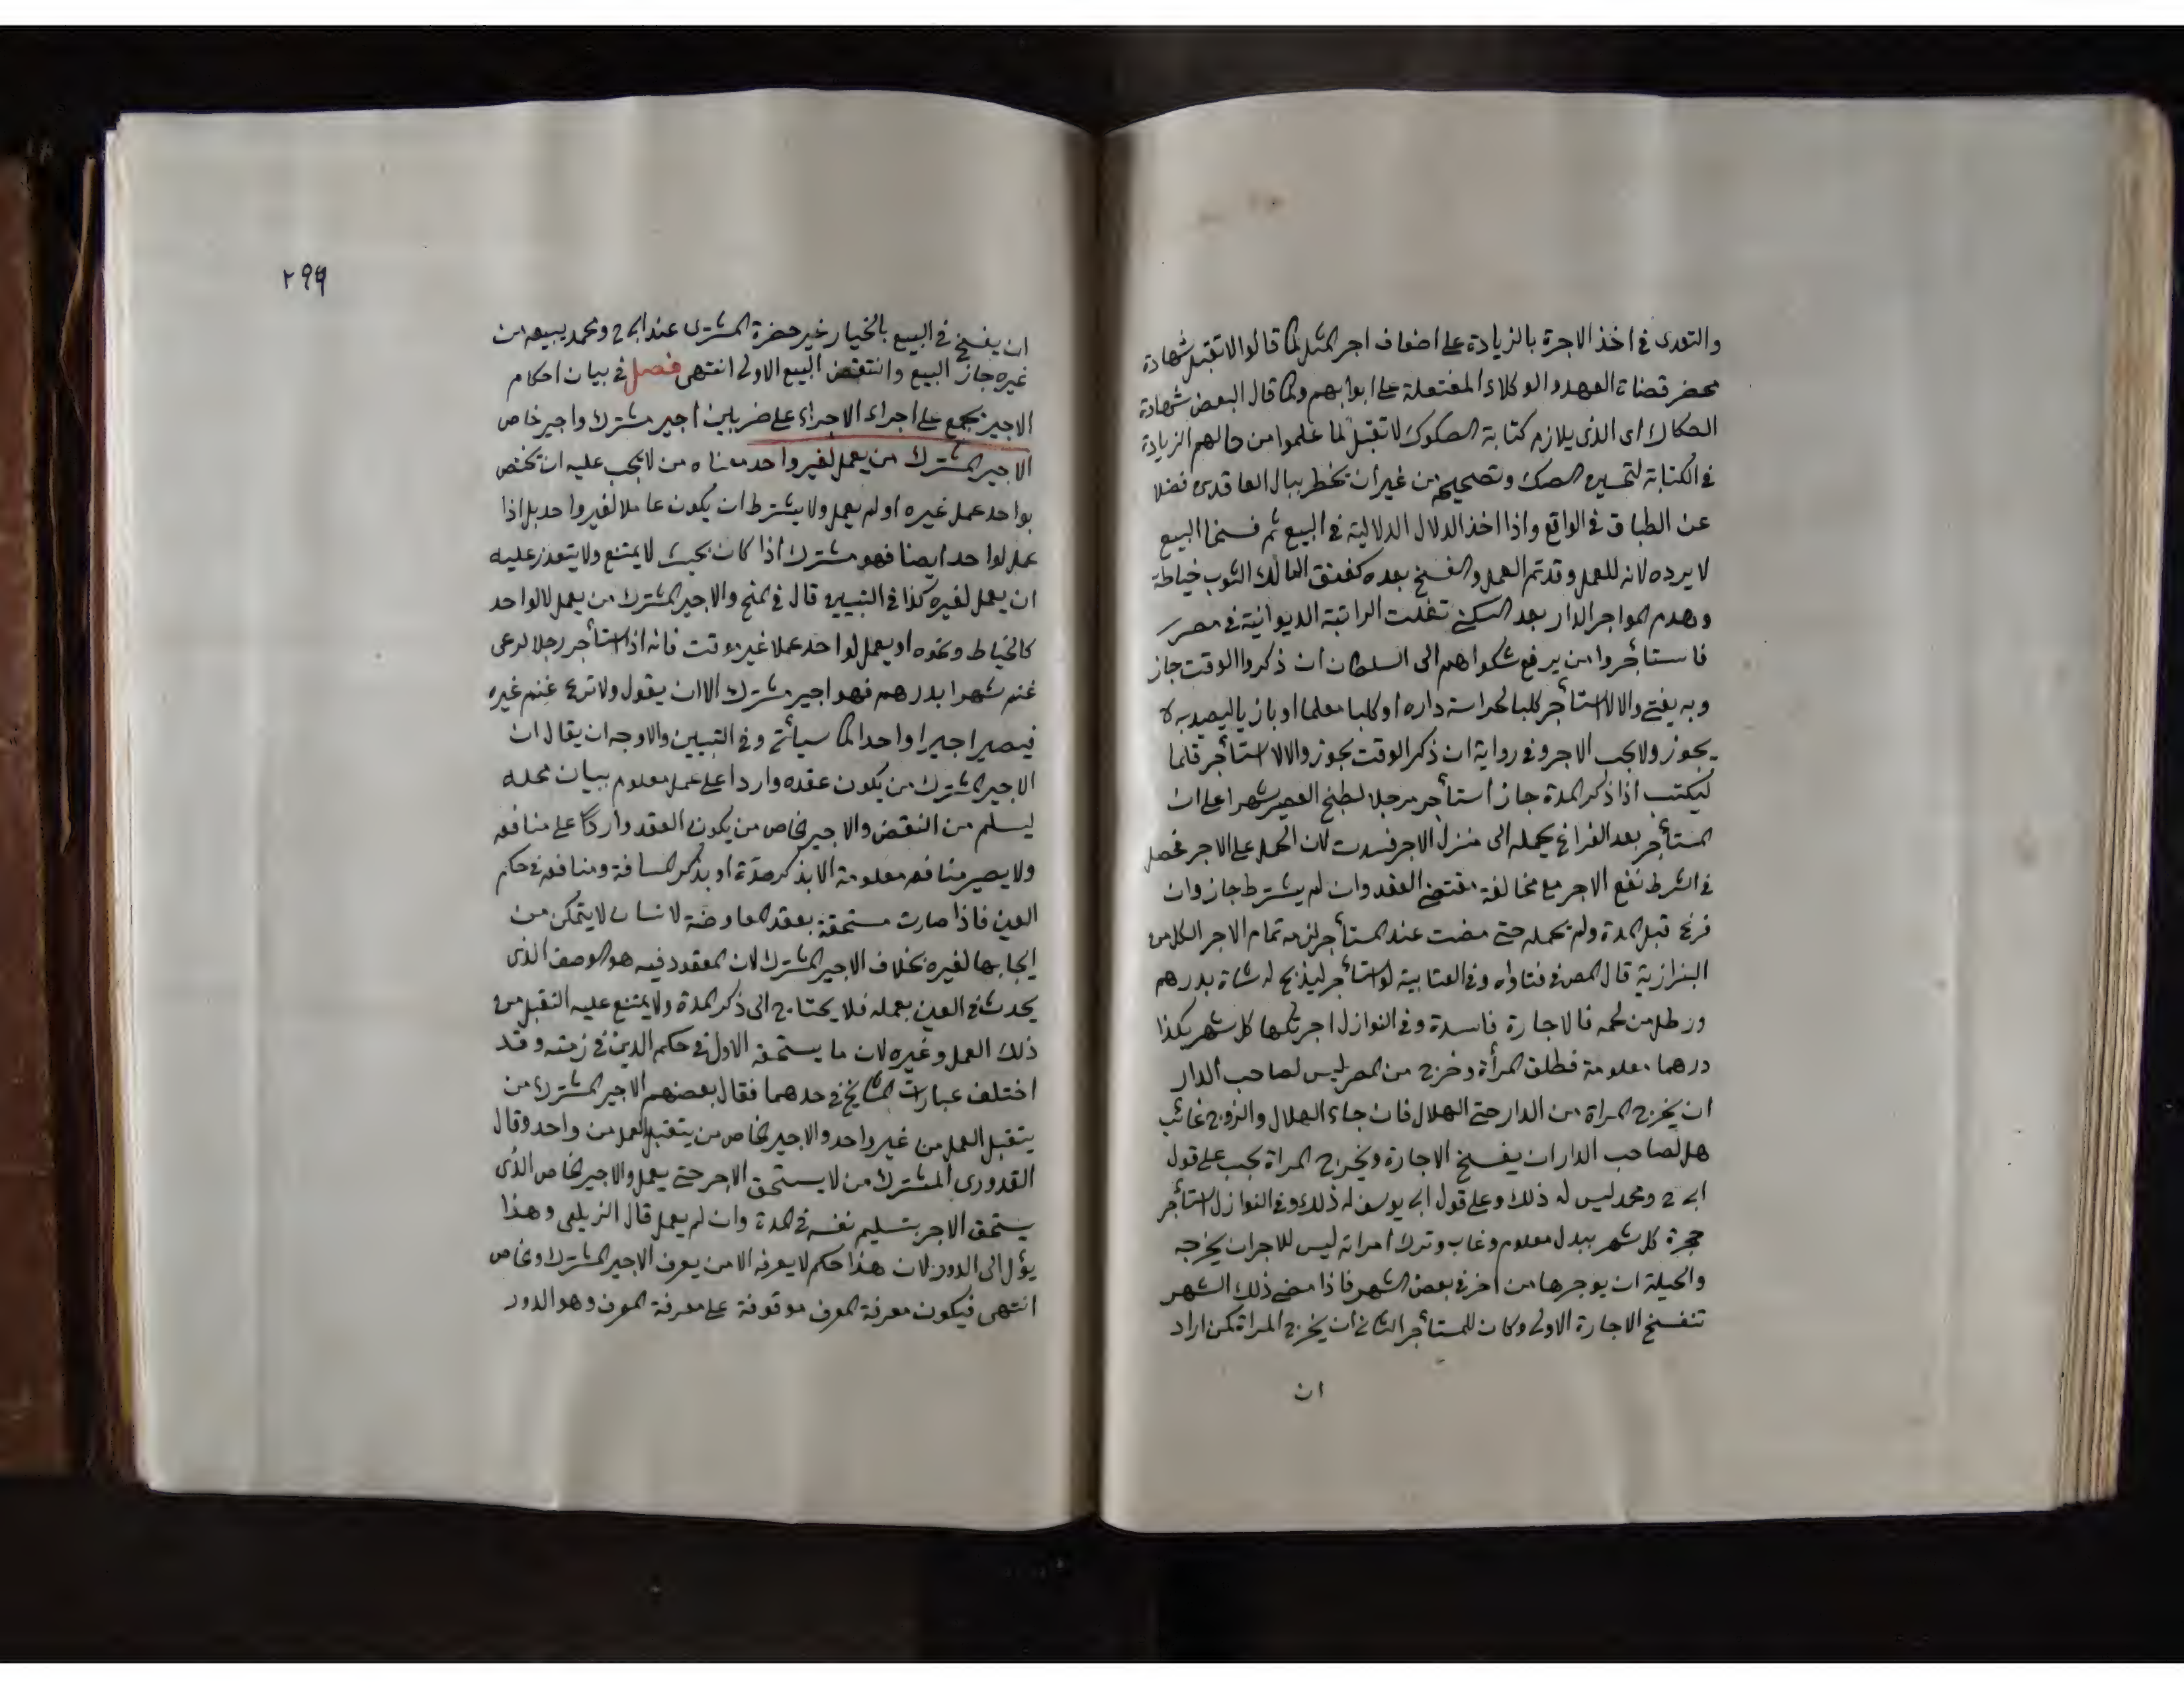 والتعدى فى اخذ الاجرة بالزيادة على اضعاف اجر المثل كما قالوا لا تقبل شهادة
محضر قضاة العهد والوكلاء المفتعلة على ابوابهم وكما قال البعض شهادة
الصكاك اى الذى يلازم كتابة الصكوك لا تقبل لما علموا من حالهم الزيادة
فى الكتابة لتحسين الصك وتصحيحه من غير ان يخطر ببال العاقدين فضلا
عن الطباق فى الواقع واذا اخذ الدلال الدلالية فى البيع ثم فسخا البيع
لا يرده لانه للعمل وقد تم العمل والفسخ بعده كفتق المالك الثوب خياطة
وهدم المواجر الدار بعد السكنى تغلت الراتبة الديوانية فى مصر
فاستأجروا من يرفع شكواهم الى السلطان ان ذكروا الوقت جاز
وبه يفتى والا لا استأجر كلبا لحراسة داره او كلبا معلما او بازيا ليصيد به لا
يجوز ولا يجب الاجر وفى رواية ان ذكر الوقت يجوز والا لا استأجر قلما
ليكتب اذا ذكر المدة جاز استأجر مرجلا لطبخ العصير شهرا على ان
المستأجر بعد الفراغ يحمله الى منزل الاجر فسدت لان الحمل على الاجر فحصل
فى الشرط نفع الاجر مع مخالفة مقتضى العقد وان لم يشترط جاز وان
فرغ قبل المدة ولم يحمله حتى مضت عند المستأجر لزمه تمام الاجر الكل من
البزازية قال المص فى فتاواه وفى العتابية لو استأجر ليذبح له شاة بدرهم
ورطل من لحمه فالاجارة فاسدة وفى النوازل اجر بكها كل شهر بكذا
درهما معلومة فطلق المرأة وخرج من المصر ليس لصاحب الدار
ان يخرج المراة من الدار حتى الهلال فان جاء الهلال والزوج غائب
هل لصاحب الدار ان يفسخ الاجارة ويخرج المراة يجب على قول
ابى ح ومحمد ليس له ذلك وعلى قول ابى يوسف له ذلك وفى النوازل استأجر
حجرة كل شهر ببدل معلوم وغاب وترك امراته ليس للاجر ان يخرجه
والحيلة ان يوجرها من اخر فى بعض الشهر فاذا مضى ذلك الشهر
تنفسخ الاجارة الاولى وكان للمستأجر الثانى ان يخرج المراة كمن اراد
ان
٢٩٩
ان يفسخ فى البيع بالخيار غير حضرة المشترى عند ابى ح ومحمد يبيعه من
غيره جاز البيع وانتقض البيع الاولى انتهى فصل فى بيان احكام
الاجير يجمع على اجراء الاجراء على ضربين اجير مشترك واجير خاص
الاجير المشترك من يعمل لغير واحد معناه من لا يجب عليه ان يختص
بواحد عمل غيره او لم يعمل ولا يشترط ان يكون عاملا لغير واحد بل اذا
عمل لواحد ايضا فهو مشترك اذا كان بحيث لا يمتنع ولا يتعذر عليه
ان يعمل لغيره كذا فى التبيين قال فى المنح والاجير المشترك من يعمل لا لواحد
كالخياط ونحوه او يعمل لواحد عملا غير موقت فانه اذا استأجر رجلا لرعى
غنم شهرا بدرهم فهو اجير مشترك الا ان يقول ولا ترع غنم غيره
فيصير اجيرا واحدا كما سيأتى وفى التبيين والاوجه ان يقال ان
الاجير المشترك من يكون عقده واردا على عمل معلوم ببيان محله
ليسلم من النقض والاجير الخاص من يكون العقد واردا على منافعه
ولا يصير منافعه معلومة الا بذكر مدة او بذكر المسافة ومنافعه فى حكم
العين فاذا صارت مستحقة بعقد المعاوضة لانسان لا يتمكن من
ايجابها لغيره بخلاف الاجير المشترك لان المعقود فيه هو الوصف الذى
يحدث فى العين بعمله فلا يحتاج الى ذكر المدة ولا يمتنع عليه التقبل من
ذلك العمل وغيره لان ما يستحقه الاول فى حكم الدين فى ذمته وقد
اختلف عبارات المشايخ فى حدهما فقال بعضهم الاجير المشترك من
يتقبل العمل من غير واحد والاجير الخاص من يتقبل العمل من واحد وقال
القدورى المشترك من لا يستحق الاجر حتى يعمل والاجير الخاص الذى
يستحق الاجر بتسليم نفسه فى المدة وان لم يعمل قال الزيلعى وهذا
يؤل الى الدور لان هذا حكم لا يعرفه الا من يعرف الاجير المشترك وخاص
انتهى فيكون معرفة المعرف موقوفة على معرفة المعرف وهو الدور